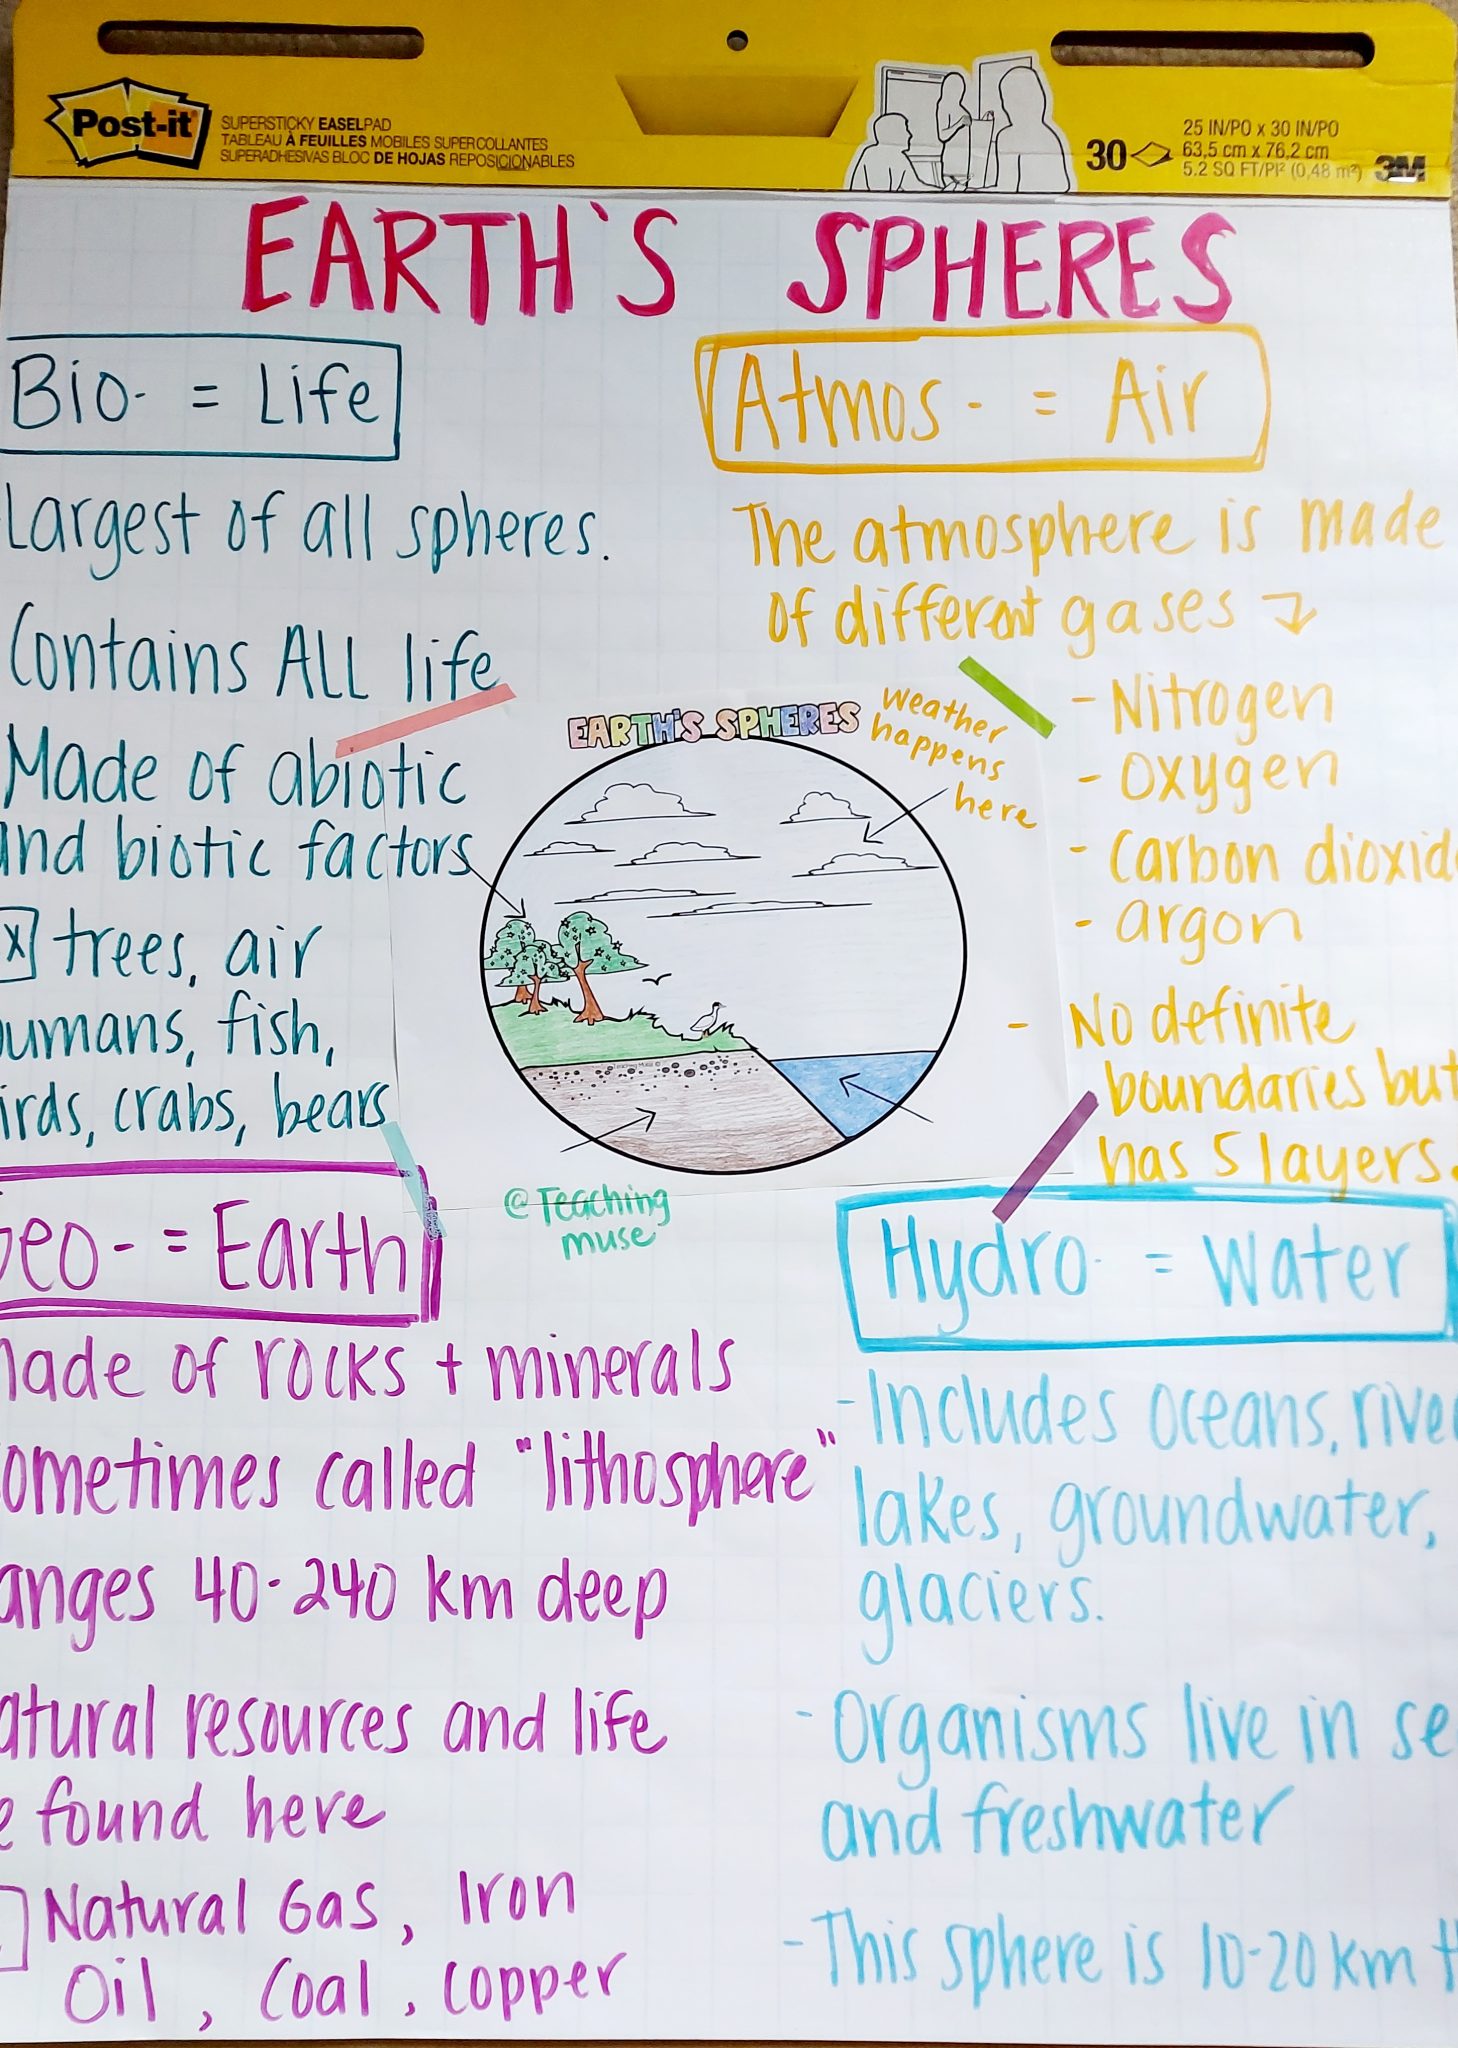 Post-it
SUPERSTICKY EASELPAD
TABLEAU À FEUILLES MOBILES SUPERCOLLANTES
SUPERADHESIVAS BLOC DE HOJAS REPOSICIONABLES
30
25 IN/PO x 30 IN/PO
63,5 cm x 76,2 cm
5.2 SQ FT/PI² (0,48 m²)
3M
EARTH'S SPHERES
Bio- = Life
Largest of all spheres.
Contains ALL life
Made of abiotic
and biotic factors
trees, air
humans, fish,
birds, crabs, bears
Atmos- = Air
The atmosphere is made
of different gases
- Nitrogen
- Oxygen
- Carbon dioxid
- argon
- No definite
boundaries but
has 5 layers.
EARTH'S SPHERES
Weather
happens
here
@Teaching
muse
Geo- = Earth
Made of rocks + minerals
Sometimes called "lithosphere"
ranges 40-240 km deep
natural resources and life
found here
Natural Gas, Iron
Oil, Coal, Copper
Hydro- = Water
- Includes oceans, rive
lakes, groundwater,
glaciers.
- Organisms live in se
and freshwater
- This sphere is 10-20 km